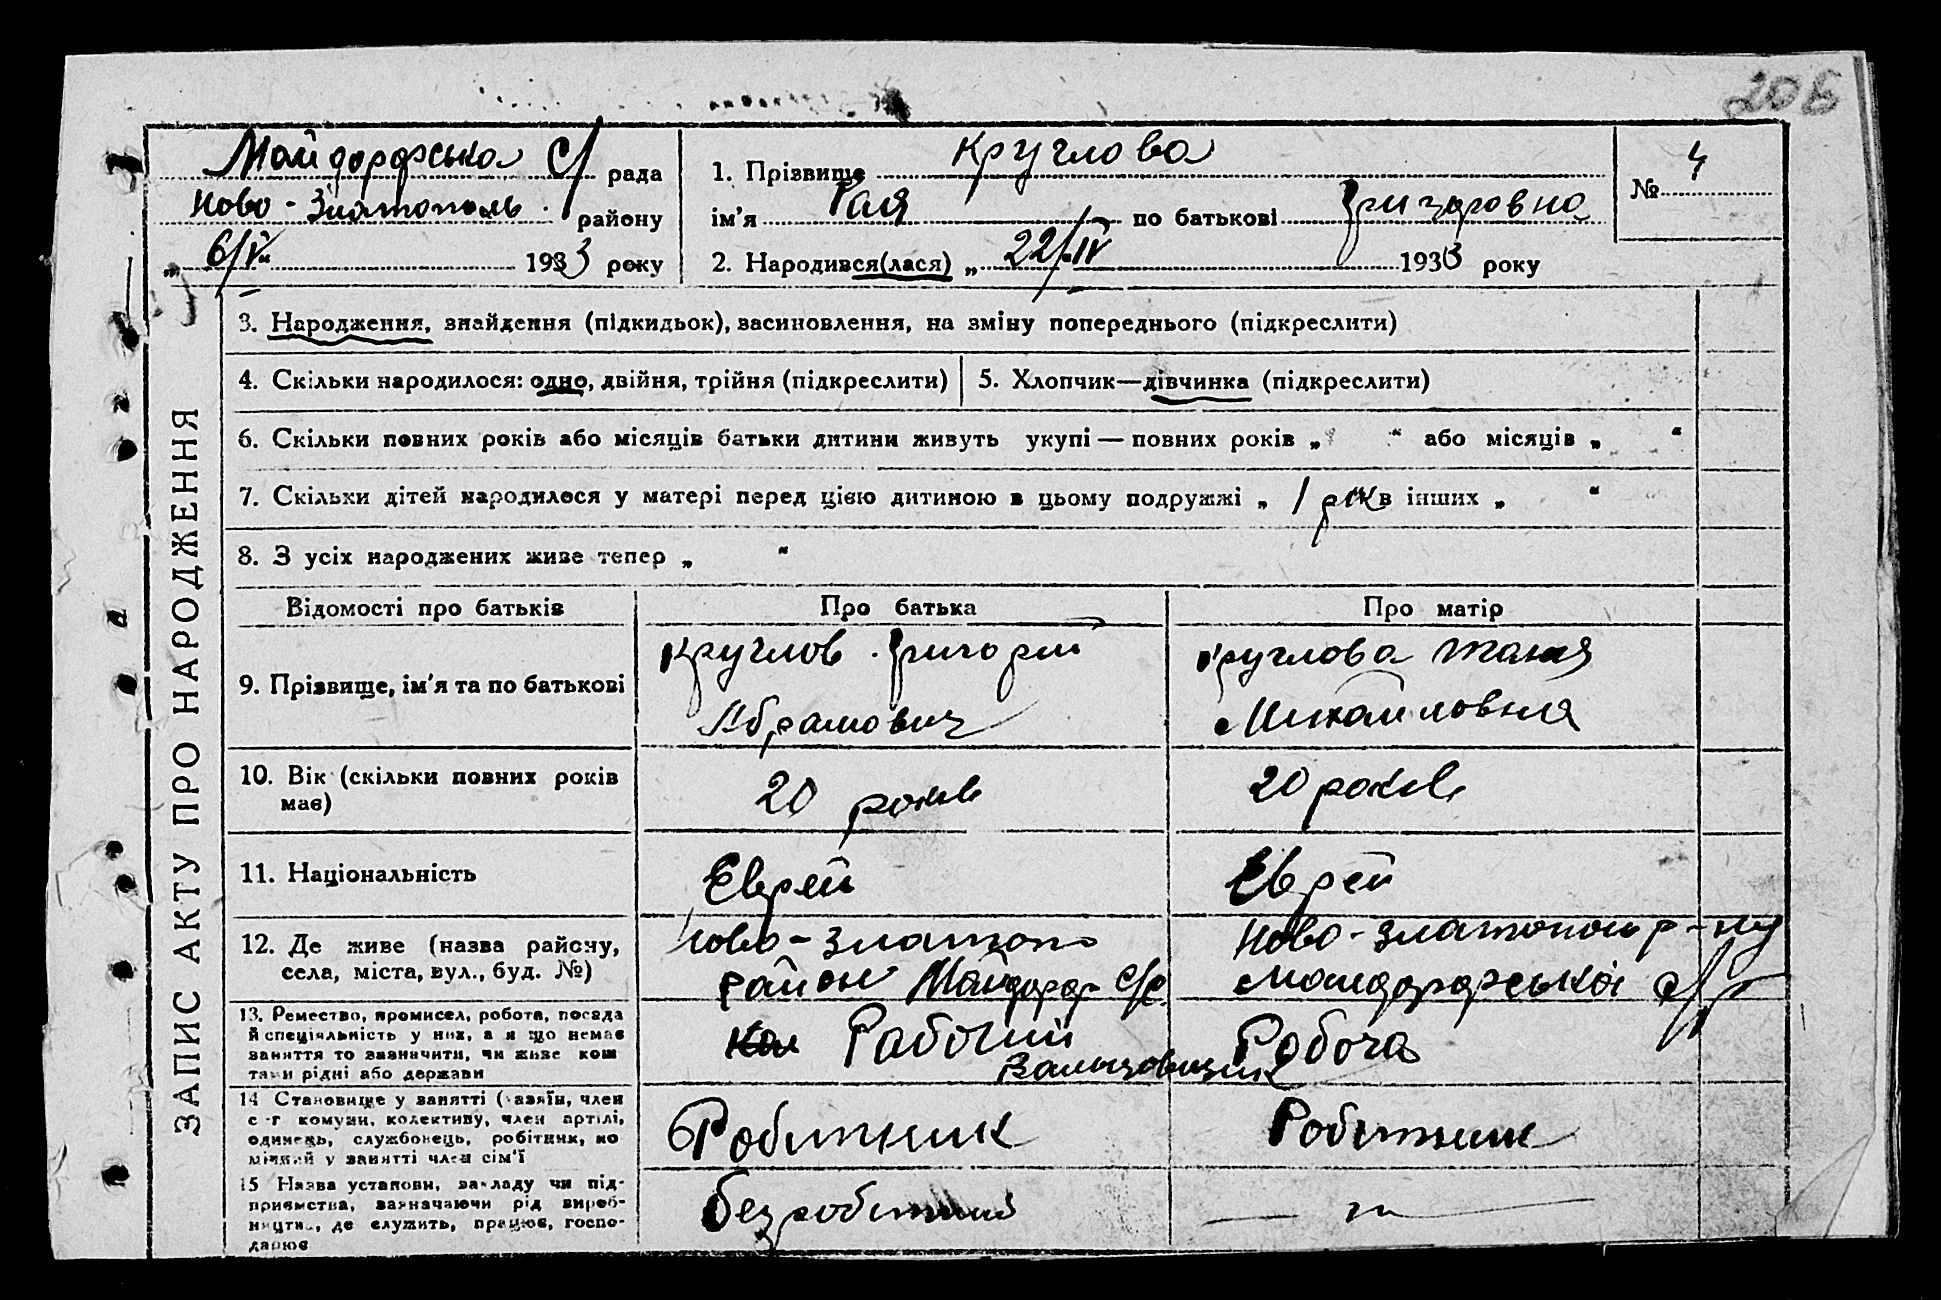 206
Майдорфська С/ рада
Ново-Златополь району
„ 6/V “ 1933 року
1. Прізвище Круглова
ім'я Рая по батькові Григоровна
2. Народився(лася) „ 22/IV 1933 року
№ 4
ЗАПИС АКТУ ПРО НАРОДЖЕННЯ
3. Народження, знайдення (підкидьок), засиновлення, на зміну попереднього (підкреслити)
4. Скільки народилося: одно, двійня, трійня (підкреслити)
5. Хлопчик—дівчинка (підкреслити)
6. Скільки повних років або місяців батьки дитини живуть укупі — повних років „ “ або місяців „ “
7. Скільки дітей народилося у матері перед цією дитиною в цьому подружжі „ 1 рік в інших „ “
8. З усіх народжених живе тепер „ “
Відомості про батьків
Про батька
Про матір
9. Прізвище, ім'я та по батькові
Круглов Григорий
Абрамович
Круглова Таня
Михайловня
10. Вік (скільки повних років
має)
20 років
20 років
11. Національність
Еврей
Еврей
12. Де живе (назва району,
села, міста, вул., буд. №)
Ново-Златопо
район Майдорф с/р
Ново-Златополь р-ну
Майдорфської с/р
13. Ремество, промисел, робота, посада
й спеціяльність у них, а я що немає
заняття то зазначити, чи живе кош
тами рідні або держави
Кол Рабочий
Робоча
14 Становище у занятті (хазяїн, член
с-г комуни, колективу, член артілі,
одинець, службовець, робітник, по
міжний у занятті член сім'ї
Робитник
Робитник
15 Назва установи, закладу чи під-
приємства, зазначаючи рід вироб-
ництва, де служить, працює, госпо-
дарює
безробитний
— " —